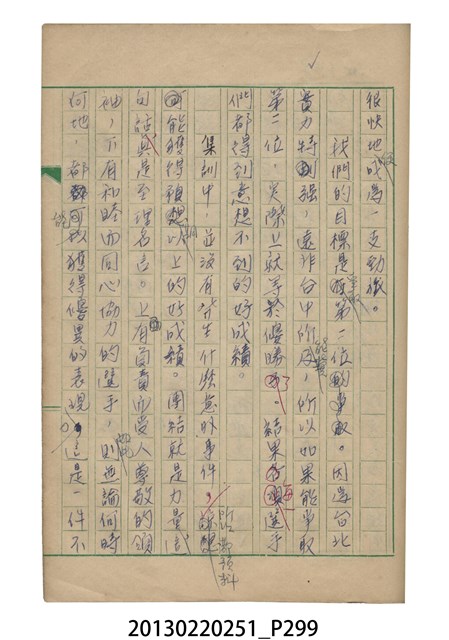 很快地成為一支勁旅。
我們的目標是爭取第二位。因為台北
實力特別強,遠非台中所能及,所以如果能爭取
第二位,实際上就等於優勝了。結果每一選手
們都得到意想不到的好成績。
集訓中,並沒有發生什麽意外事件,
可能獲得預期以上的好成績。團結就是力量這
句話真是至理名言。上有負責而受人尊敬的領
袖,下有和睦而同心協力的選手,則無論何時
何地,都能獲得優異的表現,這是一件不
20130220251_P299